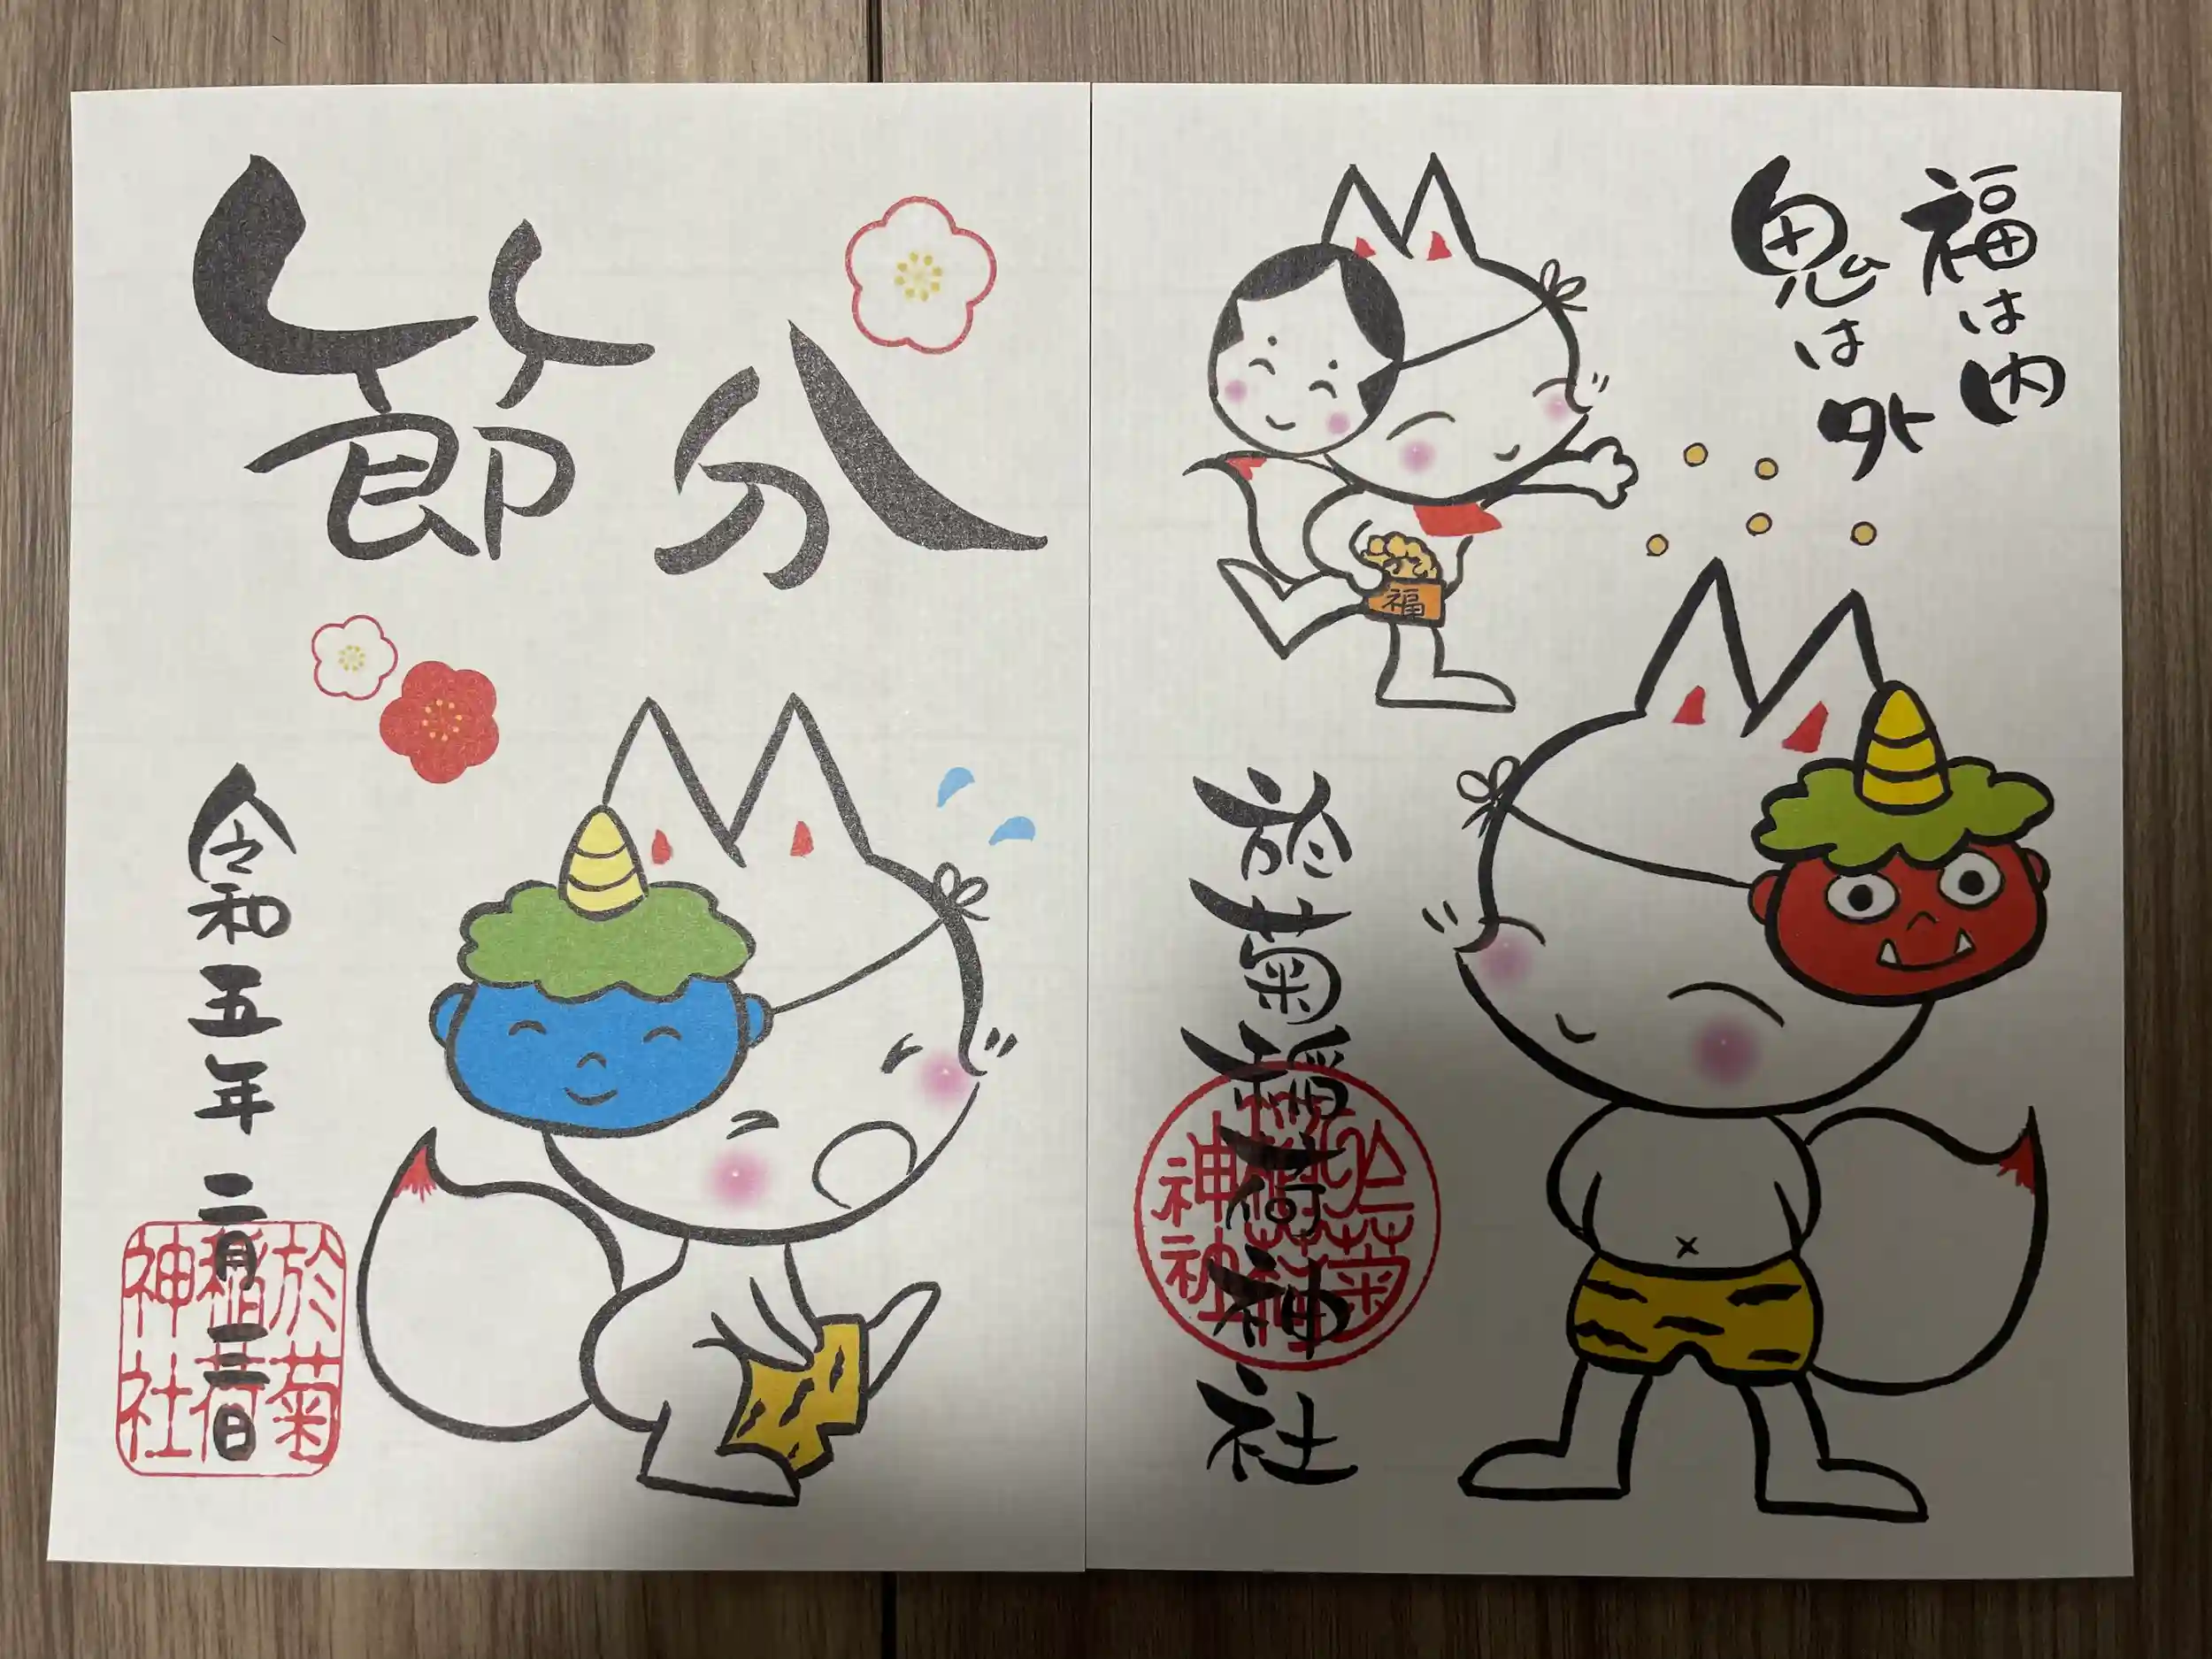 福は内
鬼は外
福
於菊稲荷神社
於菊稲荷神社
節分
令和五年二月三日
於菊稲荷神社